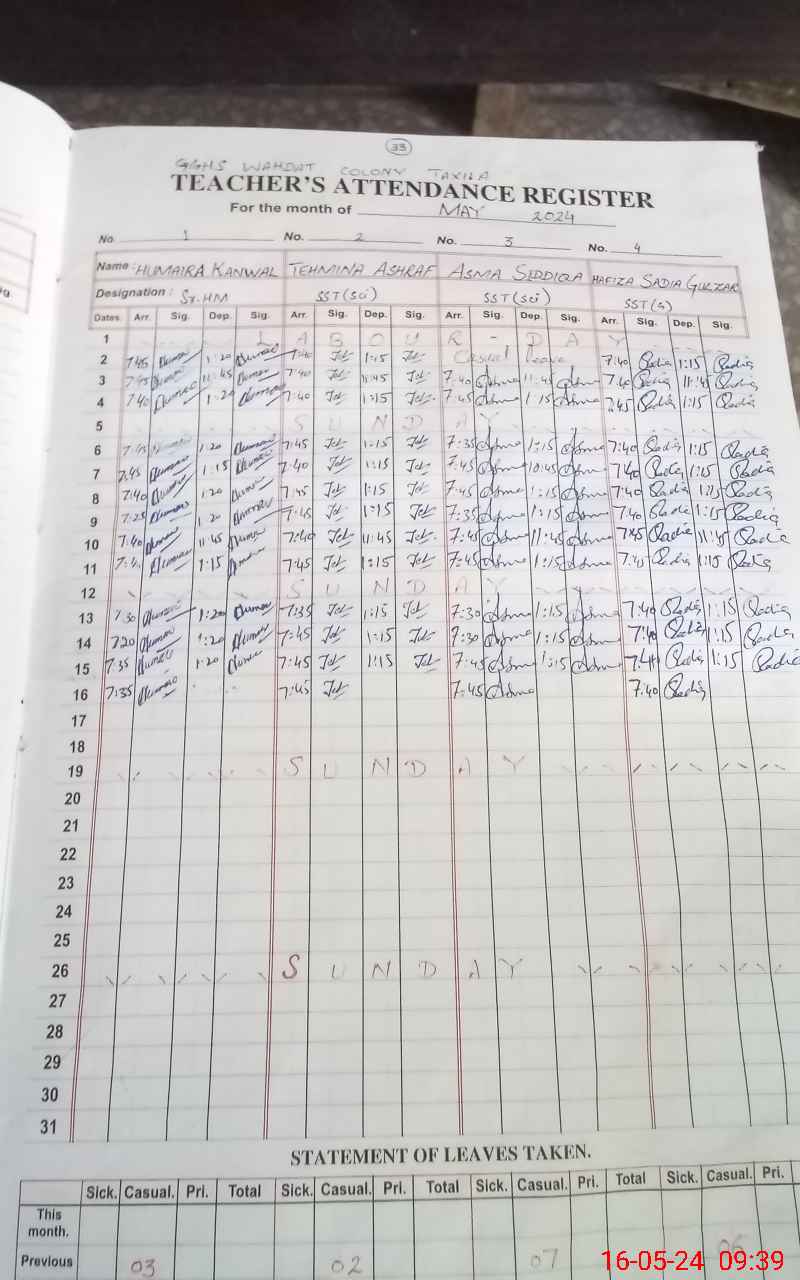 33
GGHS WAHDAT COLONY TAXILA
TEACHER'S ATTENDANCE REGISTER
For the month of MAY 2024
No. 1 No. 2 No. 3 No. 4
Name: HUMAIRA KANWAL TEHMINA ASHRAF ASMA SIDDIQA HAFIZA SADIA GULZAR
Designation: Sr.HM SST(sci) SST(sci) SST(G)
Dates. Arr. Sig. Dep. Sig. Arr. Sig. Dep. Sig. Arr. Sig. Dep. Sig. Arr. Sig. Dep. Sig.
1 LABOUR - DAY
2 7:45 1:20 7:40 1:15 Casual leave 7:40 Sadia 1:15 Sadia
3 7:45 11:45 7:40 11:45 7:40 Asma 11:45 Asma 7:40 Sadia 11:45 Sadia
4 7:40 1:20 7:40 1:15 7:45 Asma 1:15 Asma 7:45 Sadia 1:15 Sadia
5 SUNDAY
6 7:45 1:20 7:45 1:15 7:35 Asma 1:15 Asma 7:40 Sadia 1:15 Sadia
7 7:45 1:15 7:40 1:15 7:45 Asma 10:45 Asma 7:40 Sadia 1:15 Sadia
8 7:40 1:20 7:45 1:15 7:45 Asma 1:15 Asma 7:40 Sadia 1:15 Sadia
9 7:25 1:20 7:45 1:15 7:35 Asma 1:15 Asma 7:40 Sadia 1:15 Sadia
10 7:40 11:45 7:40 11:45 7:45 Asma 11:45 Asma 7:45 Sadia 11:45 Sadia
11 1:15 7:45 1:15 7:45 Asma 1:15 Asma 7:45 Sadia 1:15 Sadia
12 SUNDAY
13 7:30 1:20 7:35 1:15 7:30 Asma 1:15 Asma 7:40 Sadia 1:15 Sadia
14 7:20 1:20 7:45 1:15 7:30 Asma 1:15 Asma 7:40 Sadia 1:15 Sadia
15 7:35 1:20 7:45 1:15 7:45 Asma 1:15 Asma Sadia 1:15 Sadia
16 7:35 7:45 7:45 Asma 7:40 Sadia
17
18
19 SUNDAY
20
21
22
23
24
25
26 SUNDAY
27
28
29
30
31
STATEMENT OF LEAVES TAKEN.
Sick. Casual. Pri. Total Sick. Casual. Pri. Total Sick. Casual. Pri. Total Sick. Casual. Pri.
This month.
Previous 03 02 07 06
16-05-24 09:39